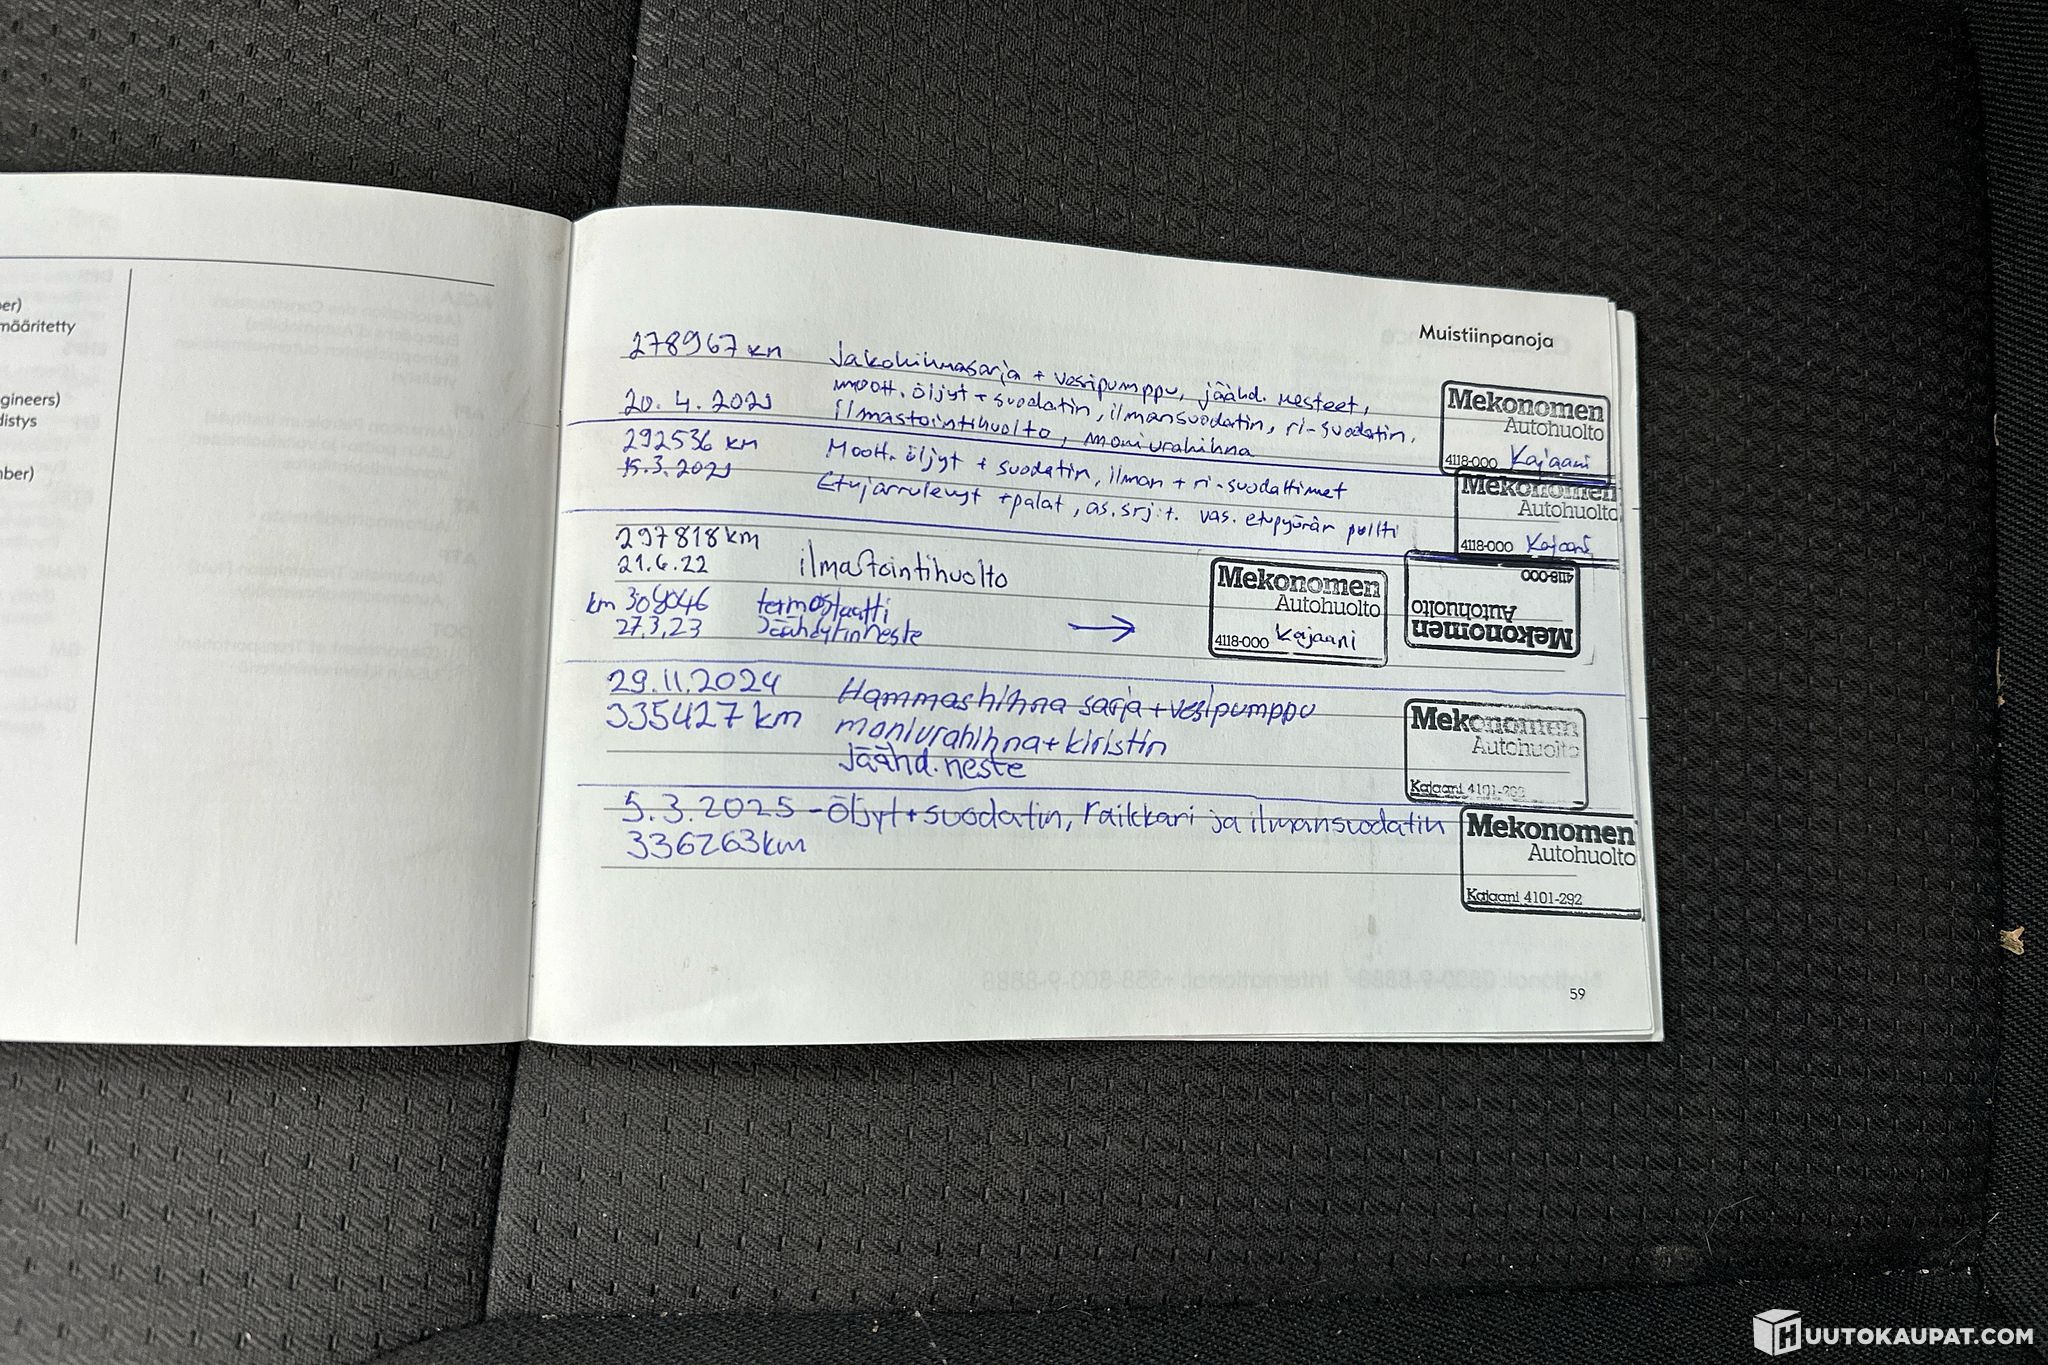 er)
määritetty
gineers)
distys
nber)
Muistiinpanoja
278967 km
Jakohihnasarja + vesipumppu, jäähd. nesteet,
20. 4. 2021
moott. öljyt + suodatin, ilmansuodatin, ri-suodatin,
ilmastointihuolto, moniurahihna
Mekonomen
Autohuolto
4118-000 Kajaani
292536 km
15.3.2021
Moott. öljyt + suodatin, ilman + ri-suodattimet
Etujarrulevyt + palat, as.srj:t. vas. etupyörän pultti
Mekonomen
Autohuolto
4118-000 Kajaani
297818 km
21.6.22
ilmastointihuolto
km 309046
27.3.23
termostaatti
Jäähdytinneste
Mekonomen
Autohuolto
4118-000 Kajaani
Mekonomen
Autohuolto
4118-000
29.11.2024
335427 km
Hammashihna sarja + vesipumppu
moniurahihna + kiristin
Jäähd. neste
Mekonomen
Autohuolto
Kajaani 4101-292
5.3.2025 - Öljyt + suodatin, raikkari ja ilmansuodatin
336263 km
Mekonomen
Autohuolto
Kajaani 4101-292
59
HUUTOKAUPAT.COM